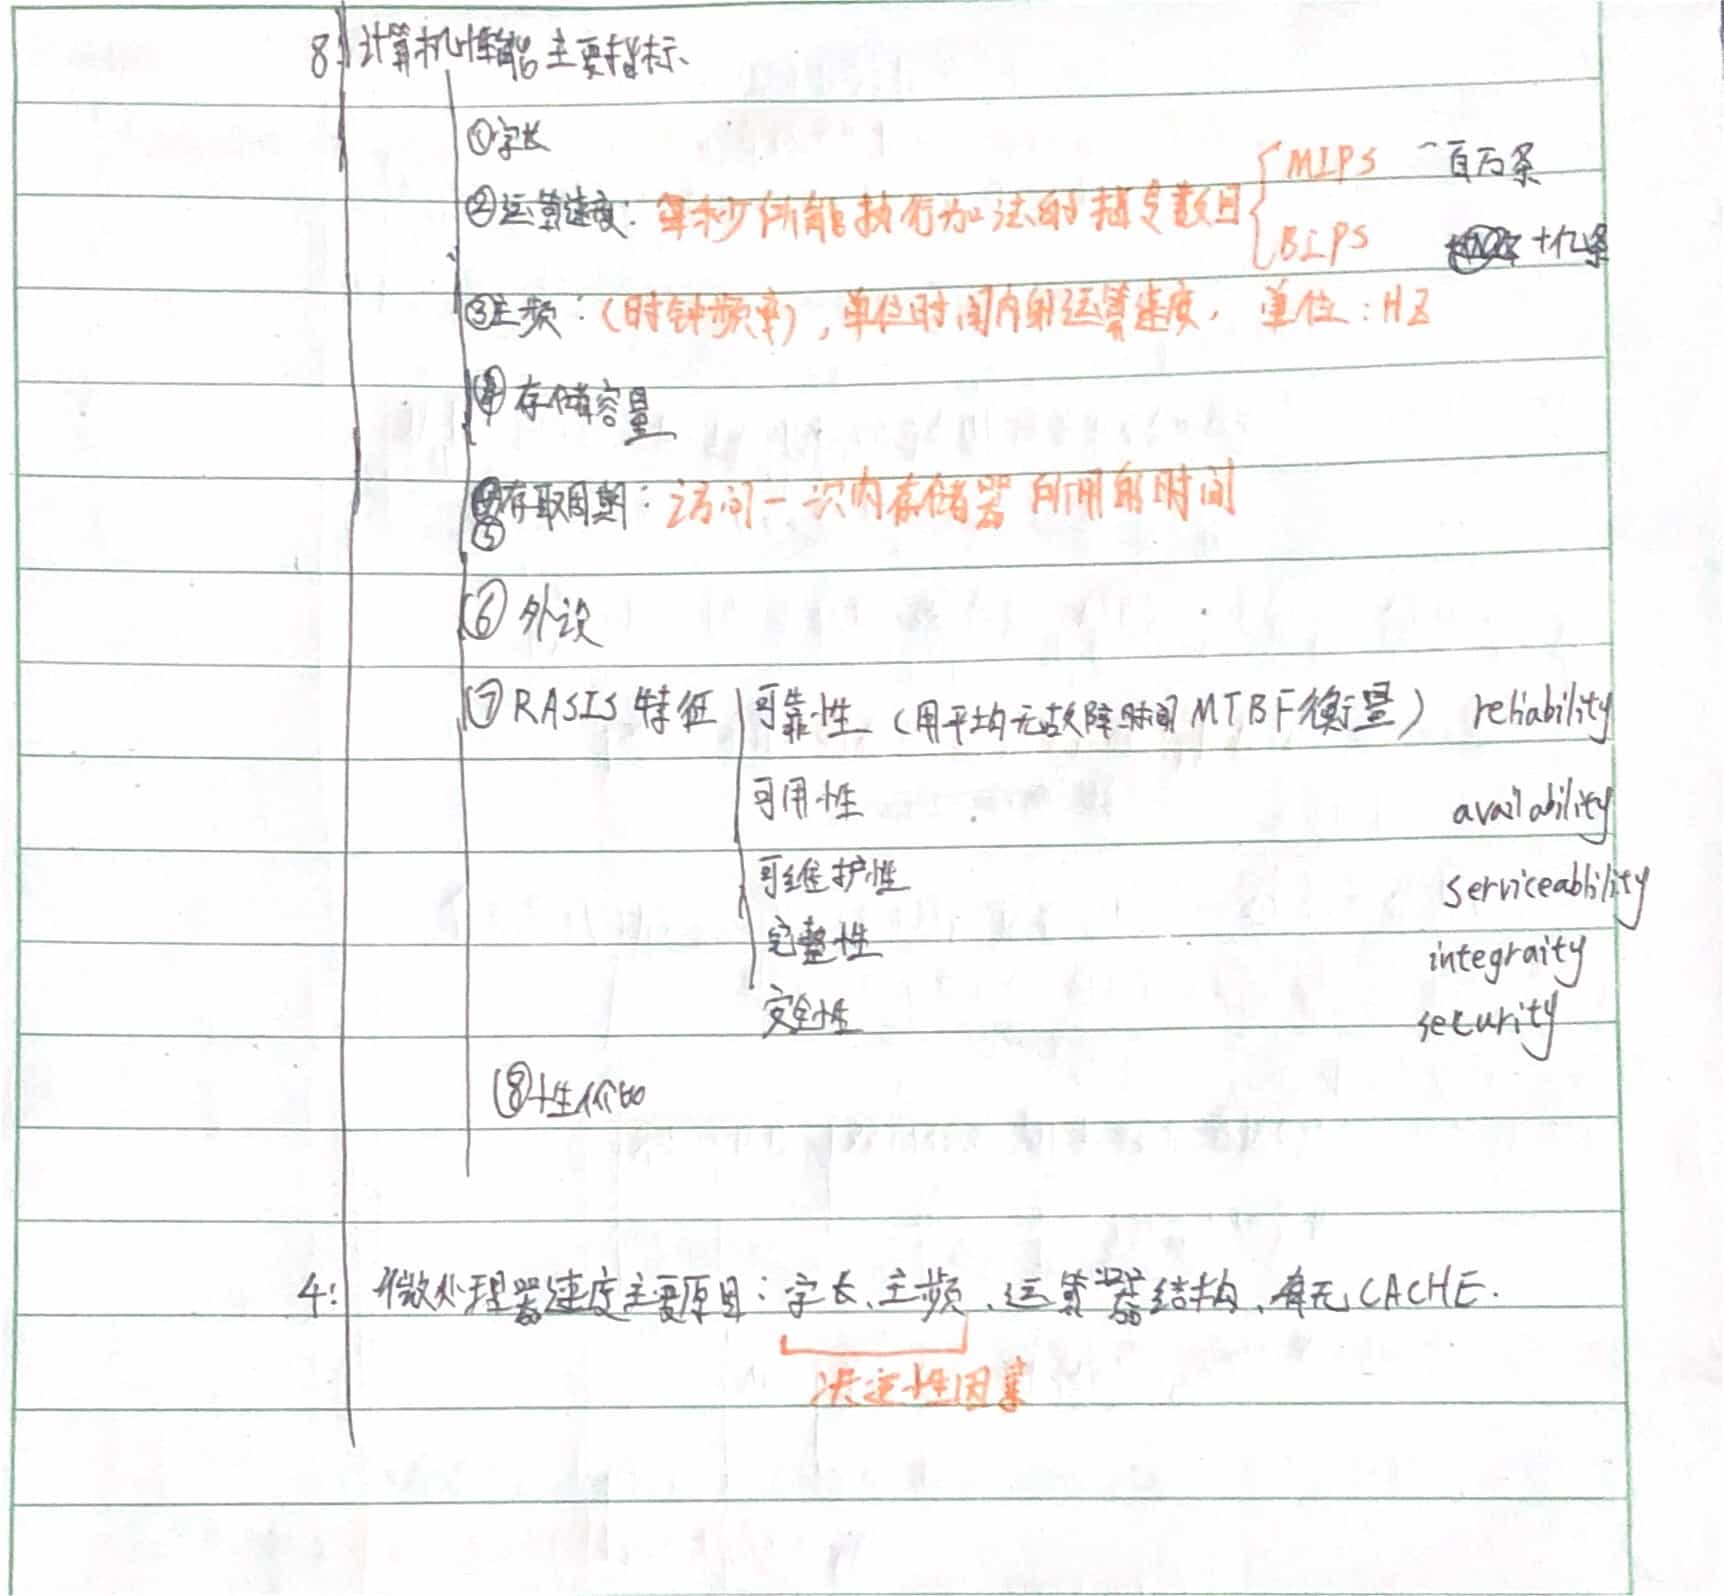 8: 计算机性能主要指标、
①字长
②运算速度：每秒所能执行加法的指令数目 MIPS 一百万条
BIPS 十亿条
③主频：（时钟频率），单位时间内的运算速度， 单位：HZ
④存储容量
⑤存取周期：访问一次内存储器所用的时间
⑥ 外设
⑦RASIS特征 可靠性（用平均无故障时间MTBF衡量） reliability
可用性 availability
可维护性 serviceablility
完整性 integraity
安全性 security
⑧性价比
4: 微处理器速度主要原因：字长、主频、运算器结构、有无CACHE.
决定性因素